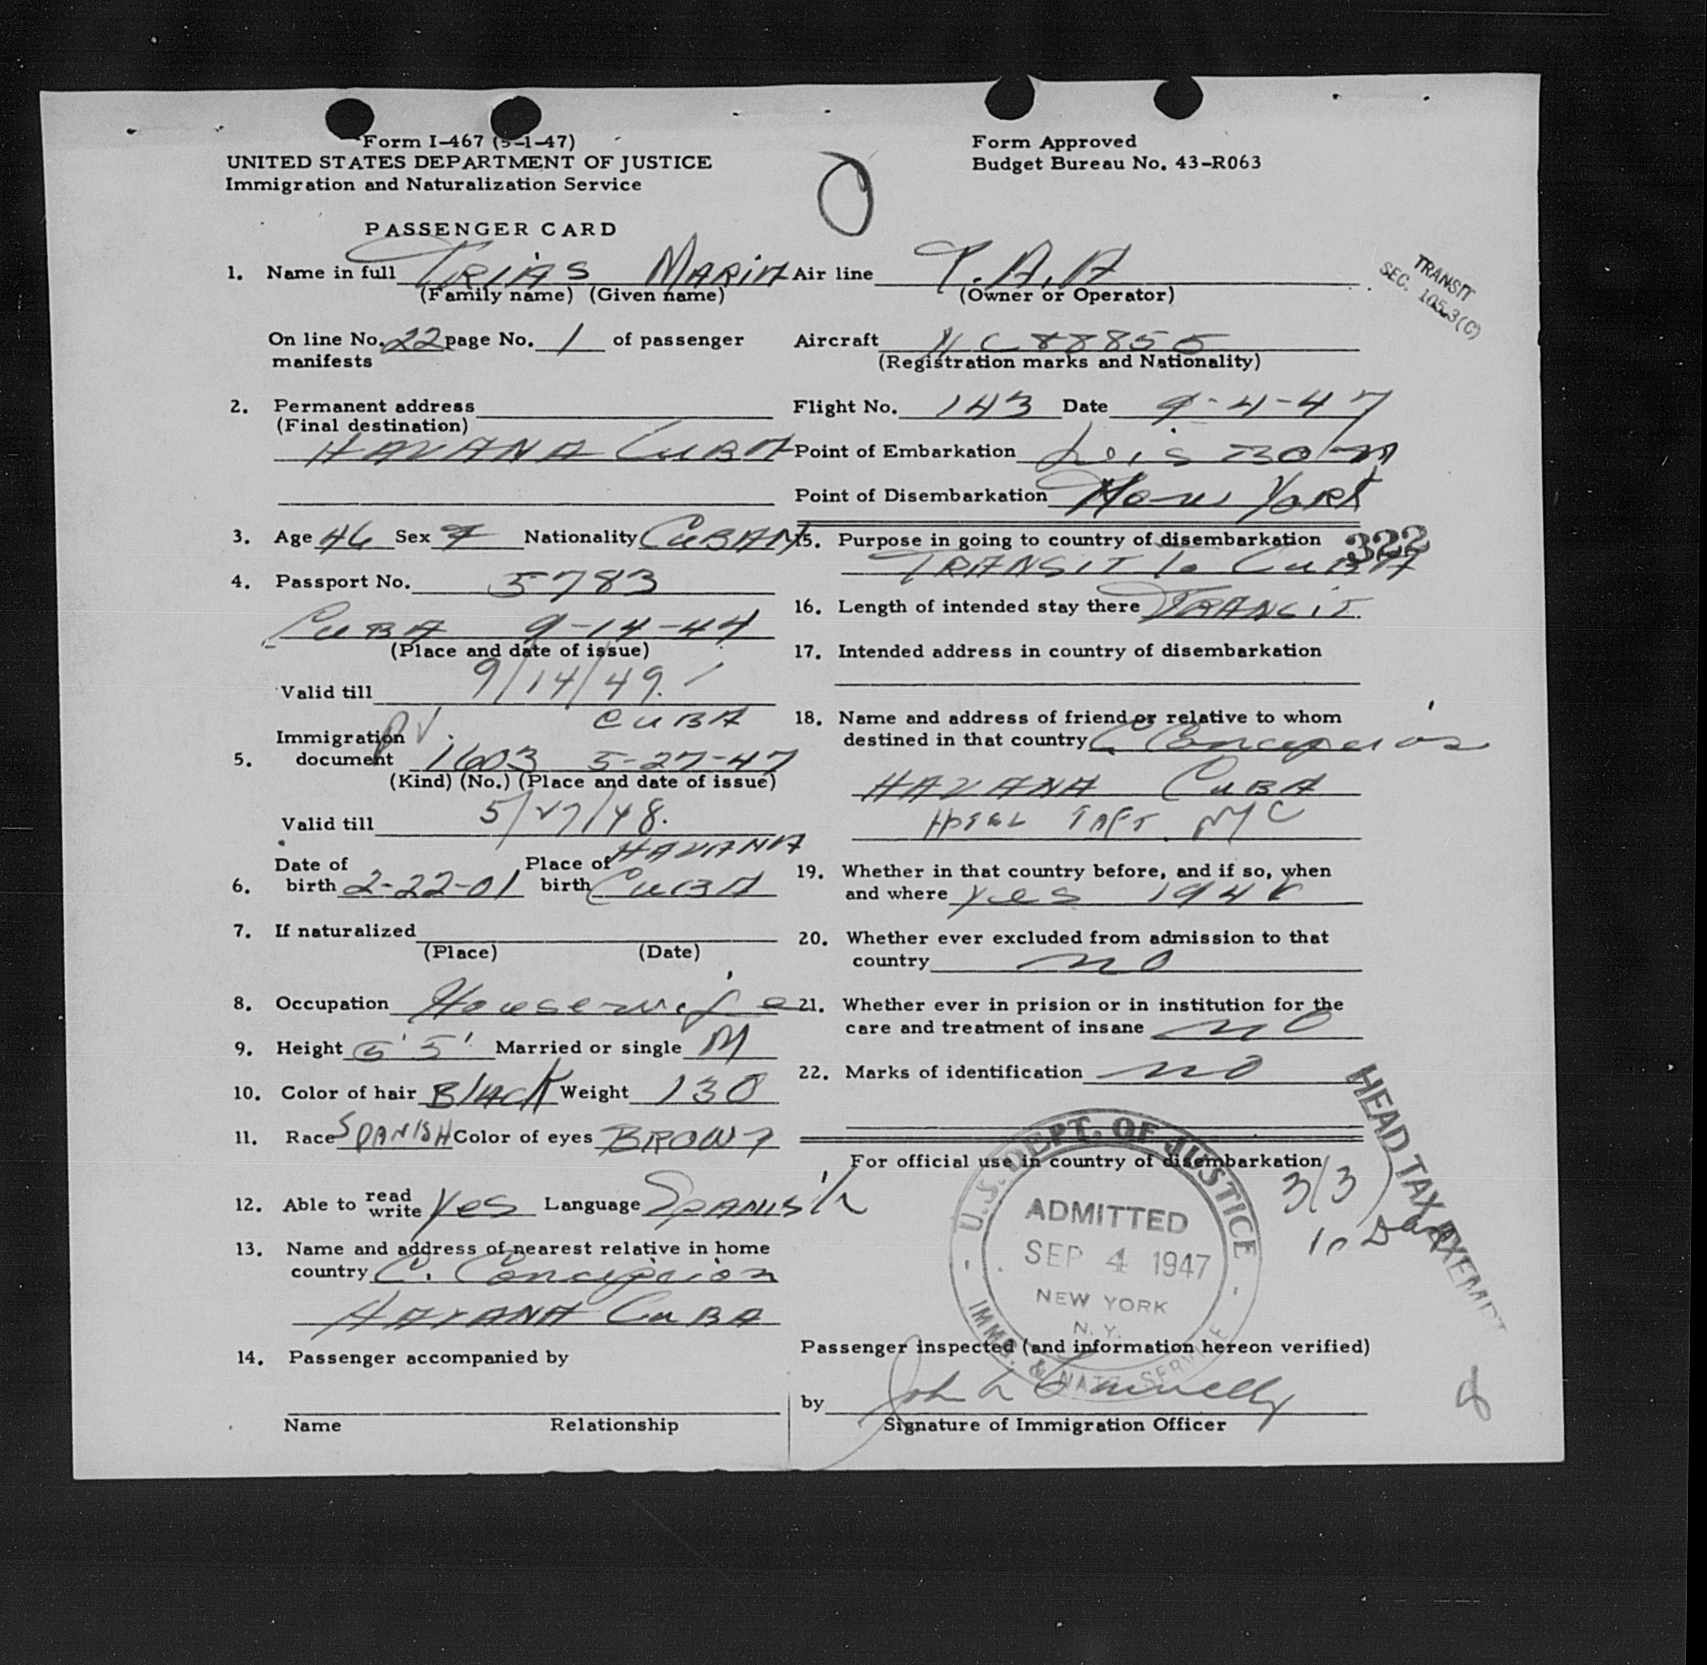 Form I-467 (5-1-47)
UNITED STATES DEPARTMENT OF JUSTICE
Immigration and Naturalization Service
PASSENGER CARD
Form Approved
Budget Bureau No. 43-R063
TRANSIT
SEC. 105.3(C)
1. Name in full TRIAS MARIA
(Family name) (Given name)
On line No. 22 page No. 1 of passenger
manifests
2. Permanent address
(Final destination)
HAVANA CUBA
3. Age 46 Sex F Nationality CUBAN
4. Passport No. 5783
CUBA 9-14-44
(Place and date of issue)
Valid till 9/14/49.
PV CUBA
Immigration
5. document 1603 5-27-47
(Kind) (No.) (Place and date of issue)
Valid till 5/27/48.
Date of Place of HAVANA
6. birth 2-22-01 birth CUBA
7. If naturalized
(Place) (Date)
8. Occupation Housewife
9. Height 5' 5' Married or single M
10. Color of hair Black Weight 130
11. Race SPANISH Color of eyes BROWN
12. Able to read write Yes Language SPANISh
13. Name and address of nearest relative in home
country C. Concepcion
HAVANA CUBA
14. Passenger accompanied by
Name Relationship
Air line T.A.A
(Owner or Operator)
Aircraft NC 88855
(Registration marks and Nationality)
Flight No. 143 Date 9-4-47
Point of Embarkation
Point of Disembarkation New York
15. Purpose in going to country of disembarkation 322
TRANSIT to CUBA
16. Length of intended stay there TRANSIT
17. Intended address in country of disembarkation
18. Name and address of friend or relative to whom
destined in that country C Concepcion
HAVANA CUBA
HOTEL TAFT NYC
19. Whether in that country before, and if so, when
and where yes
20. Whether ever excluded from admission to that
country no
21. Whether ever in prision or in institution for the
care and treatment of insane no
22. Marks of identification no
HEAD TAX EXEMPT
For official use in country of disembarkation
3/3
U.S. DEPT. OF JUSTICE
ADMITTED
SEP 4 1947
NEW YORK
N.Y.
IMMG. & NATZ. SERVICE
Passenger inspected (and information hereon verified)
by John L Connelly
Signature of Immigration Officer